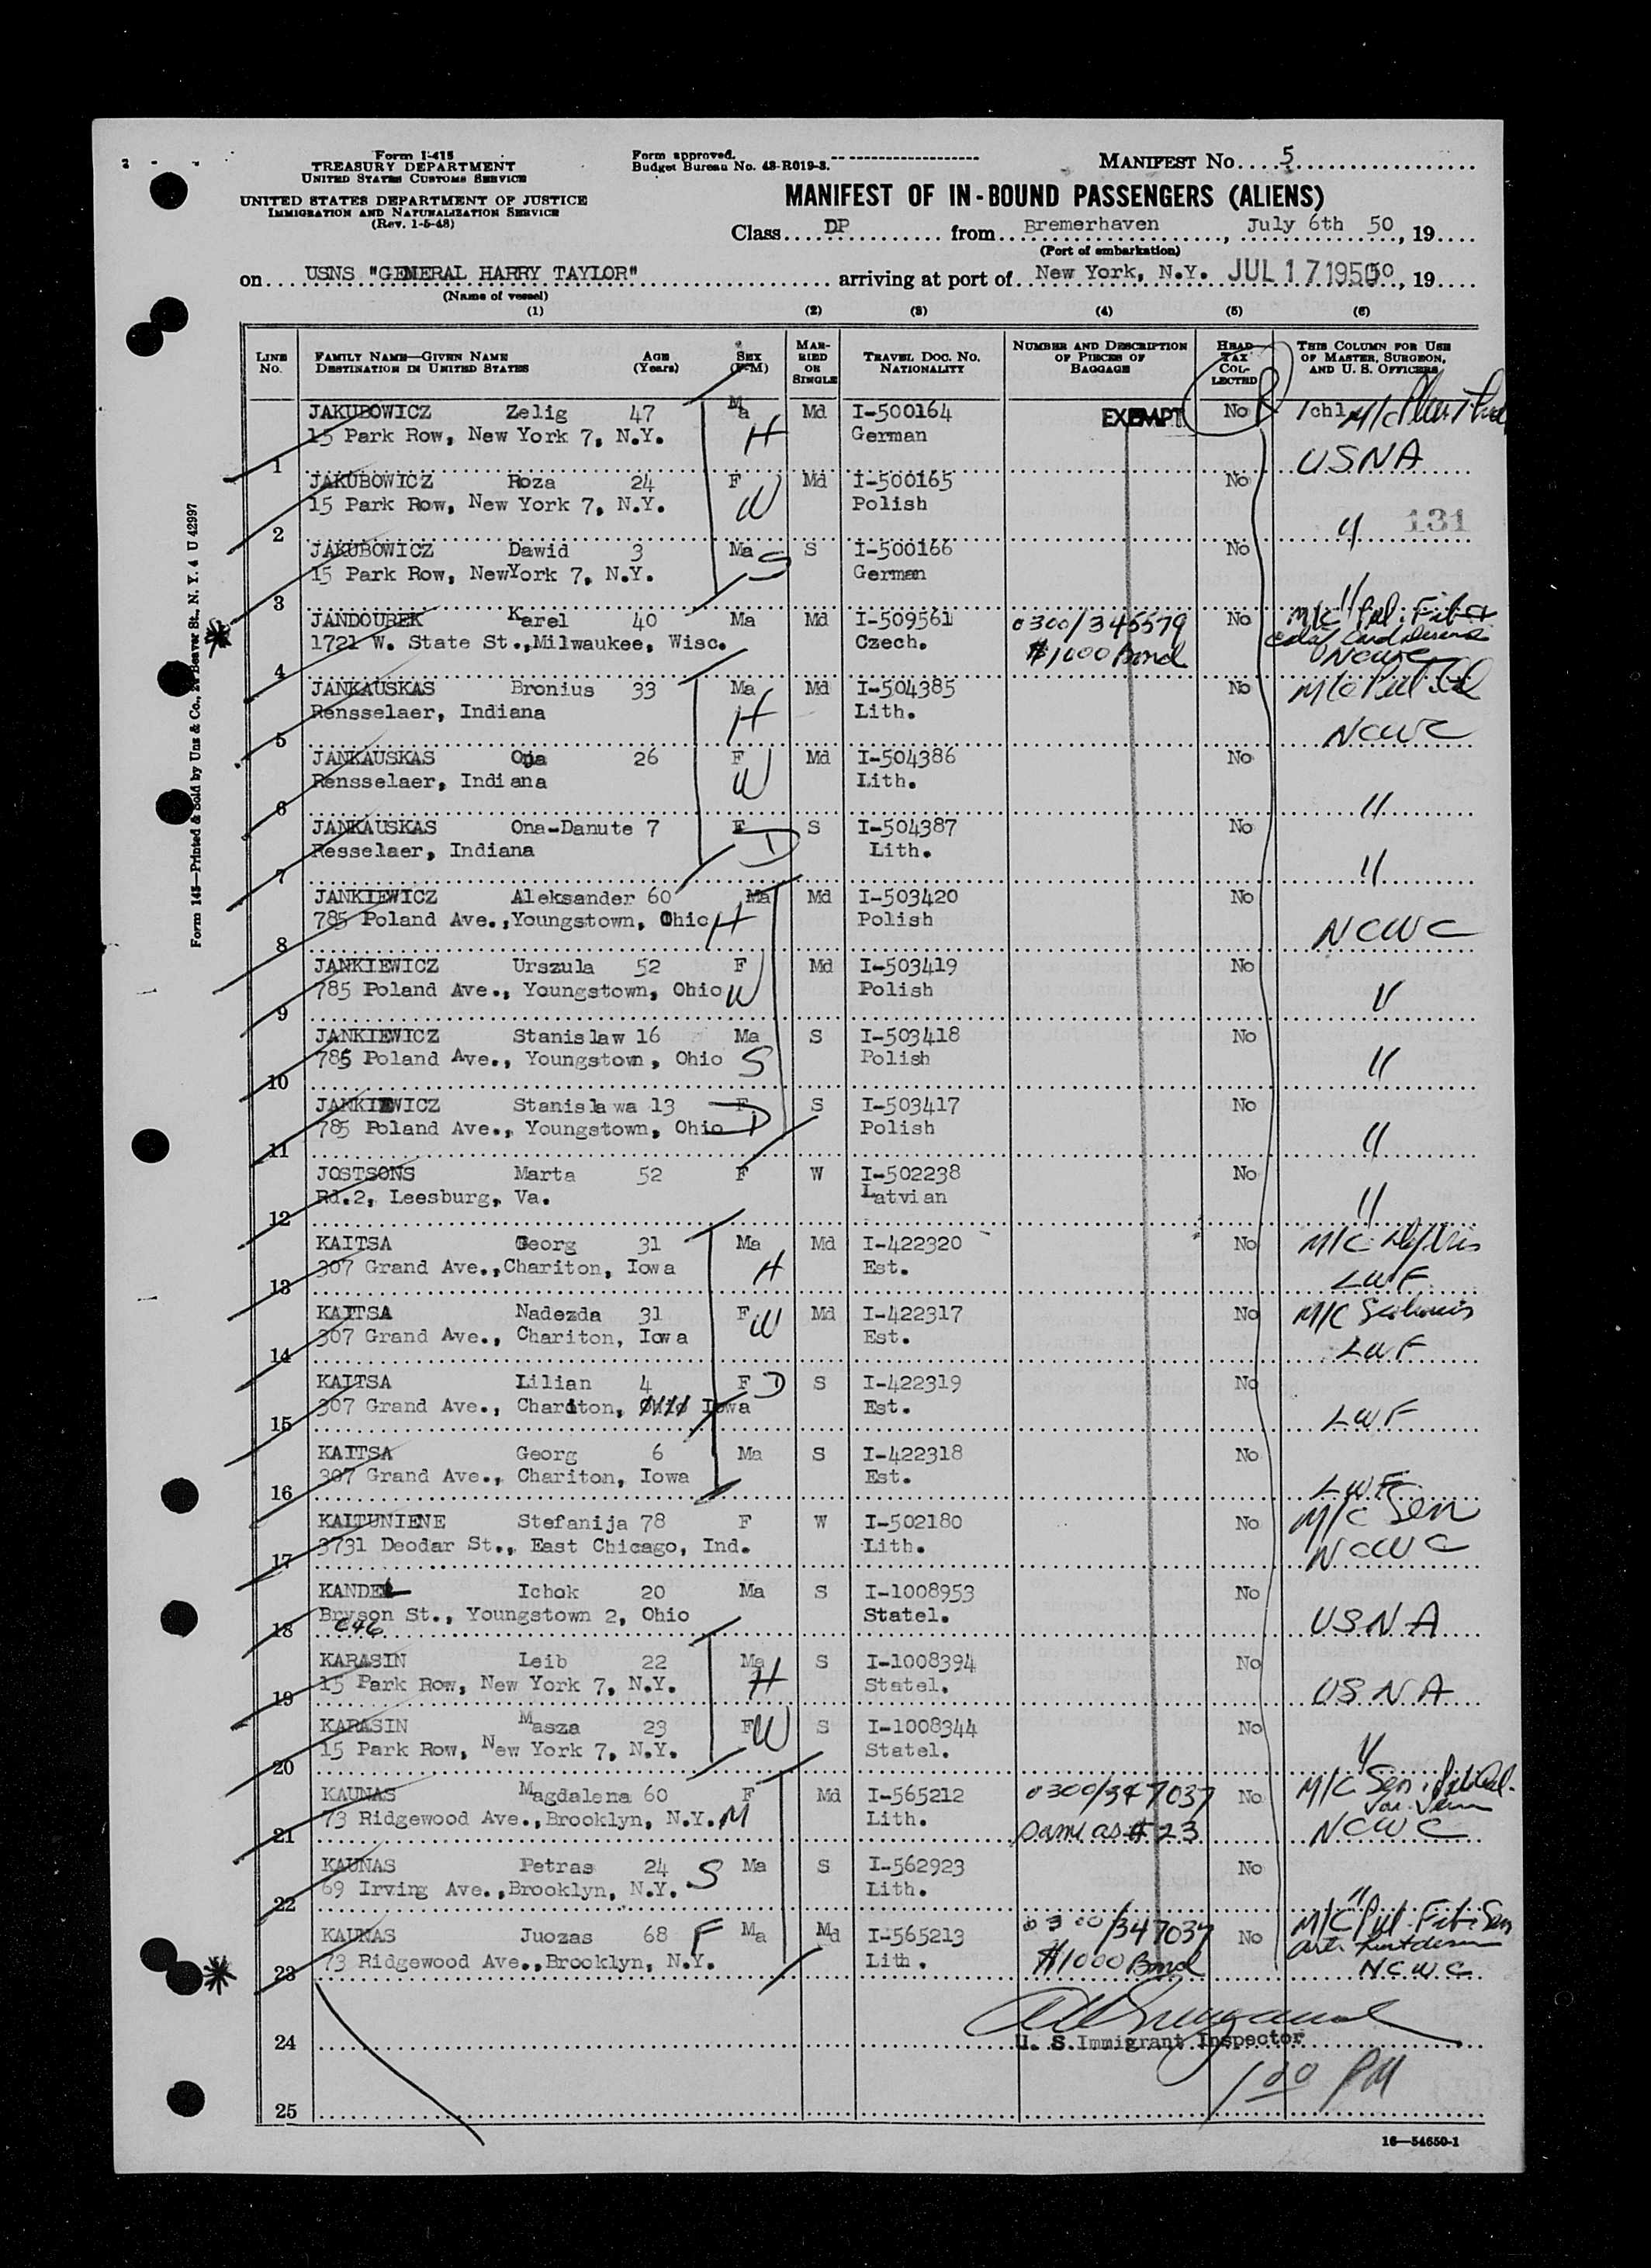 Form I-415
TREASURY DEPARTMENT
UNITED STATES CUSTOMS SERVICE
UNITED STATES DEPARTMENT OF JUSTICE
IMMIGRATION AND NATURALIZATION SERVICE
(Rev. 1-5-48)
Form approved.
Budget Bureau No. 43-R019-3.
MANIFEST No. 5
MANIFEST OF IN-BOUND PASSENGERS (ALIENS)
Class DP from Bremerhaven, July 6th 50, 19
(Port of embarkation)
on USNS "GENERAL HARRY TAYLOR" arriving at port of New York, N.Y. JUL 17 1950 50, 19
(Name of vessel)
(1) (2) (3) (4) (5) (6)
LINE No. FAMILY NAME—GIVEN NAME DESTINATION IN UNITED STATES AGE (Years) SEX (F-M) MARRIED OR SINGLE TRAVEL DOC. NO. NATIONALITY NUMBER AND DESCRIPTION OF PIECES OF BAGGAGE HEAD TAX COLLECTED THIS COLUMN FOR USE OF MASTER, SURGEON, AND U. S. OFFICERS
JAKUBOWICZ Zelig 47 Ma Md I-500164 EXEMPT No 1chl M/C
15 Park Row, New York 7, N.Y. H German
1 USNA
JAKUBOWICZ Roza 24 F Md I-500165 No
15 Park Row, New York 7, N.Y. W Polish
2 " 131
JAKUBOWICZ Dawid 3 Ma S S I-500166 No
15 Park Row, NewYork 7, N.Y. German
3 "
JANDOUREK Karel 40 Ma Md I-509561 0300/345579 No M/C Pul. Fib
1721 W. State St., Milwaukee, Wisc. Czech. $1000 Bond
4 NCWC
JANKAUSKAS Bronius 33 Ma Md I-504385 No M/C Pul
Rensselaer, Indiana H Lith.
5 NCWC
JANKAUSKAS Ona 26 F Md I-504386 No
Rensselaer, Indiana W Lith.
6 "
JANKAUSKAS Ona-Danute 7 F D S I-504387 No
Resselaer, Indiana Lith.
7 "
JANKIEWICZ Aleksander 60 Ma Md I-503420 No
785 Poland Ave., Youngstown, Ohio H Polish
8 NCWC
JANKIEWICZ Urszula 52 F Md I-503419 No
785 Poland Ave., Youngstown, Ohio W Polish
9 "
JANKIEWICZ Stanislaw 16 Ma S I-503418 No
785 Poland Ave., Youngstown, Ohio S Polish
10 "
JANKIEWICZ Stanislawa 13 F S I-503417 No
785 Poland Ave., Youngstown, Ohio D Polish
11 "
JOSTSONS Marta 52 F W I-502238 No
Rd.2, Leesburg, Va. Latvian
12 "
KAITSA Georg 31 Ma Md I-422320 No M/C
307 Grand Ave., Chariton, Iowa H Est.
13 LWF
KAITSA Nadezda 31 F W Md I-422317 No M/C
307 Grand Ave., Chariton, Iowa Est.
14 LWF
KAITSA Lilian 4 F D S I-422319 No
307 Grand Ave., Chariton, Iowa Est.
15 LWF
KAITSA Georg 6 Ma S I-422318 No
307 Grand Ave., Chariton, Iowa Est.
16 LWF
KAITUNIENE Stefanija 78 F W I-502180 No M/C Sen
3731 Deodar St., East Chicago, Ind. Lith.
17 NCWC
KANDEL Ichok 20 Ma S I-1008953 No
Bryson St., Youngstown 2, Ohio Statel.
18 646 USNA
KARASIN Leib 22 Ma S I-1008394 No
15 Park Row, New York 7, N.Y. H Statel.
19 USNA
KARASIN Masza 23 F W S I-1008344 No
15 Park Row, New York 7, N.Y. Statel.
20 "
KAUNAS Magdalena 60 F Md I-565212 0300/347037 No M/C Sen.
73 Ridgewood Ave., Brooklyn, N.Y. M Lith. Same as # 23
21 NCWC
KAUNAS Petras 24 S Ma S I-562923 No
69 Irving Ave., Brooklyn, N.Y. Lith.
22 "
KAUNAS Juozas 68 F Ma Md I-565213 0300/347037 No M/C Pul. Fib. Sen
73 Ridgewood Ave., Brooklyn, N.Y. Lith. $1000 Bond
23 NCWC
24 U. S. Immigrant Inspector
1 00 PM
25
16—54650-1
Form 145—Printed & Sold by Unz & Co., 24 Beaver St., N. Y. 4 U 42997